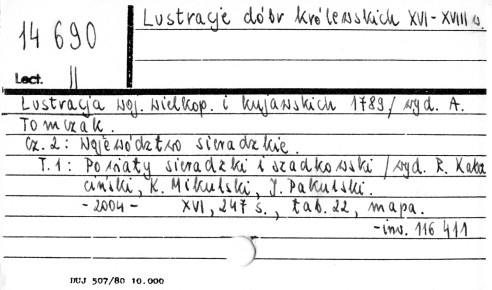 14 690
Lustracje dóbr królewskich XVI-XVIII w.
Lect. II
Lustracja woj. wielkop. i kujawskich 1789 / wyd. A.
Tomczak.
Cz. 2: Województwo sieradzkie.
T. 1: Powiaty sieradzki i szadkowski / wyd. R. Kaba
ciński, K. Mikulski, J. Pakulski.
- 2004 - XVI, 247 s., tab. 22, mapa.
- inw. 116 411
DUJ 507/80 10.000